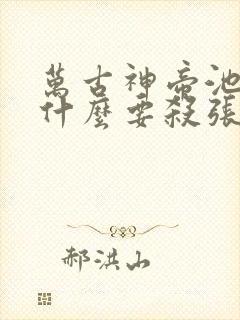 萬古神帝池
什麼要殺張
郝洪山